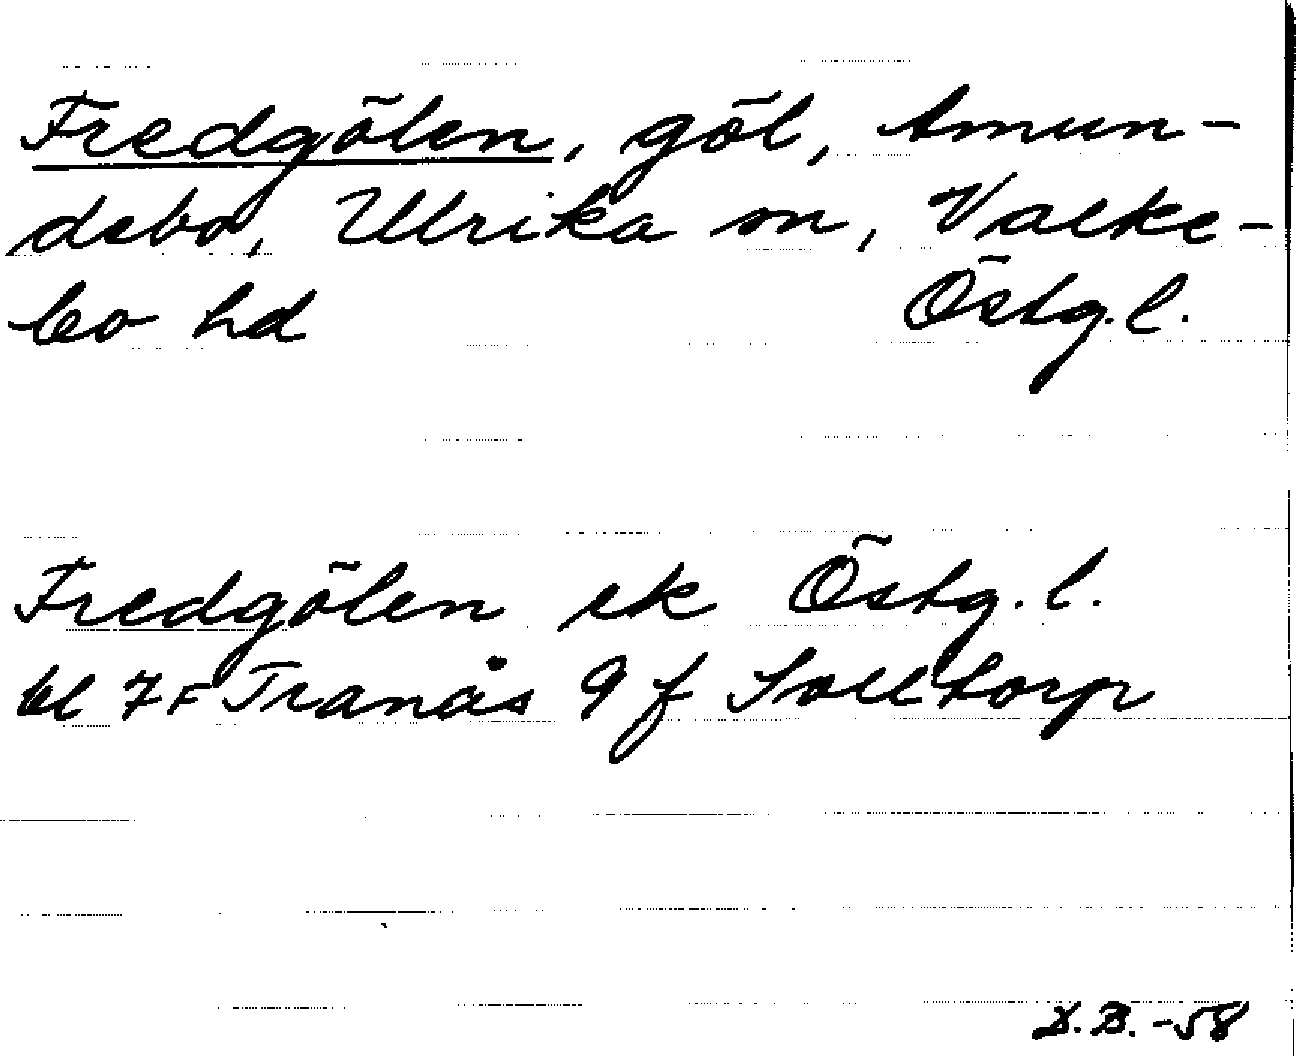 Fredgölen, göl, Amun-
debo, Ulrika sn, Valke-
bo hd Östg.l.
Fredgölen ek Östg.l.
bl 7F Tranås 9 f Solltorp
D.B. -58